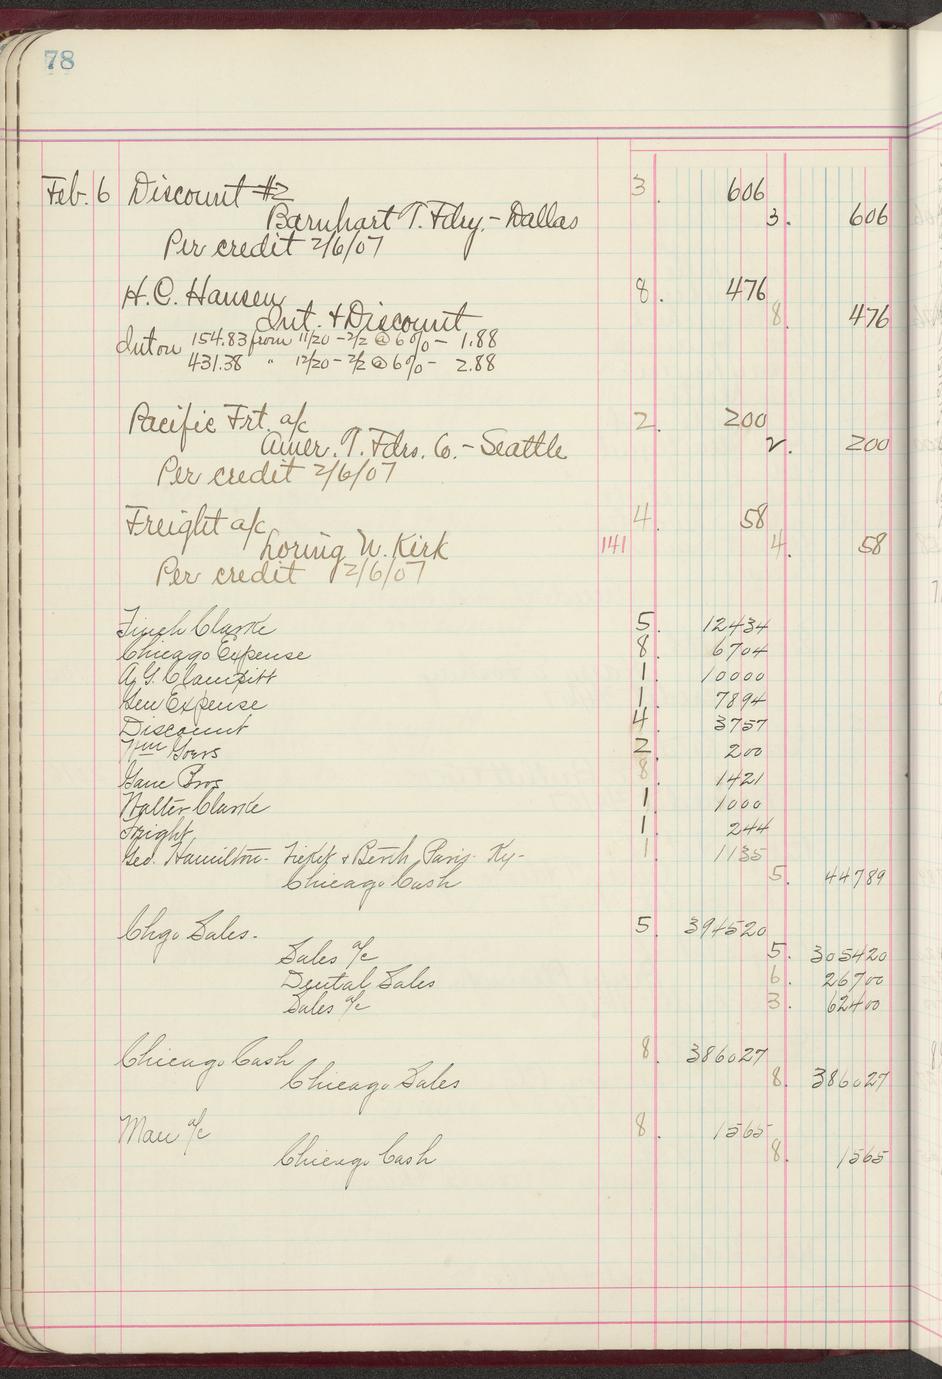 78
Feb. 6 Discount #2 3 606
Barnhart T. Fdry. - Dallas 3. 606
Per credit 2/6/07
H. C. Hansen 8. 476
Int. & Discount 8. 476
Int on 154.83 from 11/20 - 2/2 @ 6% - 1.88
431.38 " 12/20 - 2/2 @ 6% - 2.88
Pacific Frt. a/c 2. 200
Amer. T. Fdrs. Co. - Seattle 2. 200
Per credit 2/6/07
Freight a/c 4. 58
Loring N. Kirk 141 4. 58
Per credit 2/6/07
Finch Clarke 5. 12434
Chicago Expense 8. 6704
A. G. Clampitt 1. 10000
Gen Expense 1. 7894
Discount 4. 3757
Wm Goers 2. 200
Gane Bros 8. 1421
Walter Clarke 1 1000
Freight 1. 244
Geo. Hamilton - Ticket & Berth Paris - Ky - 1. 1135
Chicago Cash 5. 44789
Chgo Sales. 5. 394520
Sales a/c 5. 305420
Dental Sales 6. 26700
Sales a/c 3. 62400
Chicago Cash 8. 386027
Chicago Sales 8. 386027
Man a/c 8. 1565
Chicago Cash 8. 1565